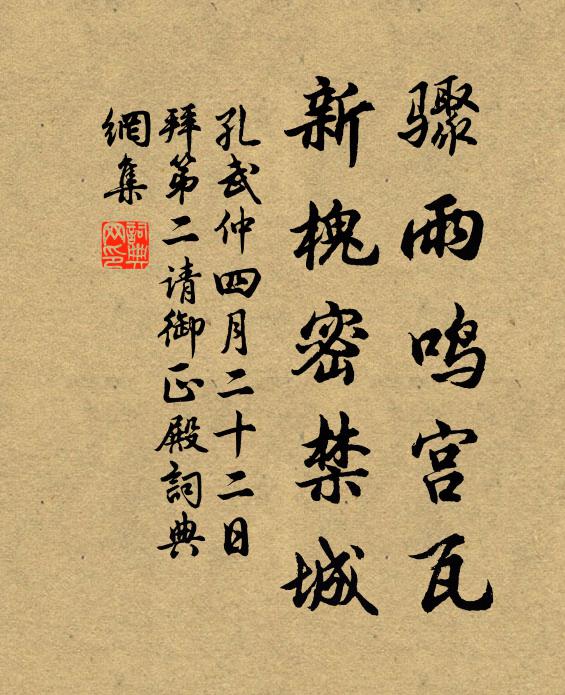 骤雨鸣宫瓦
新槐密禁城
孔武仲四月二十二日
拜第二请御正殿詞典
網集
詞典
网印